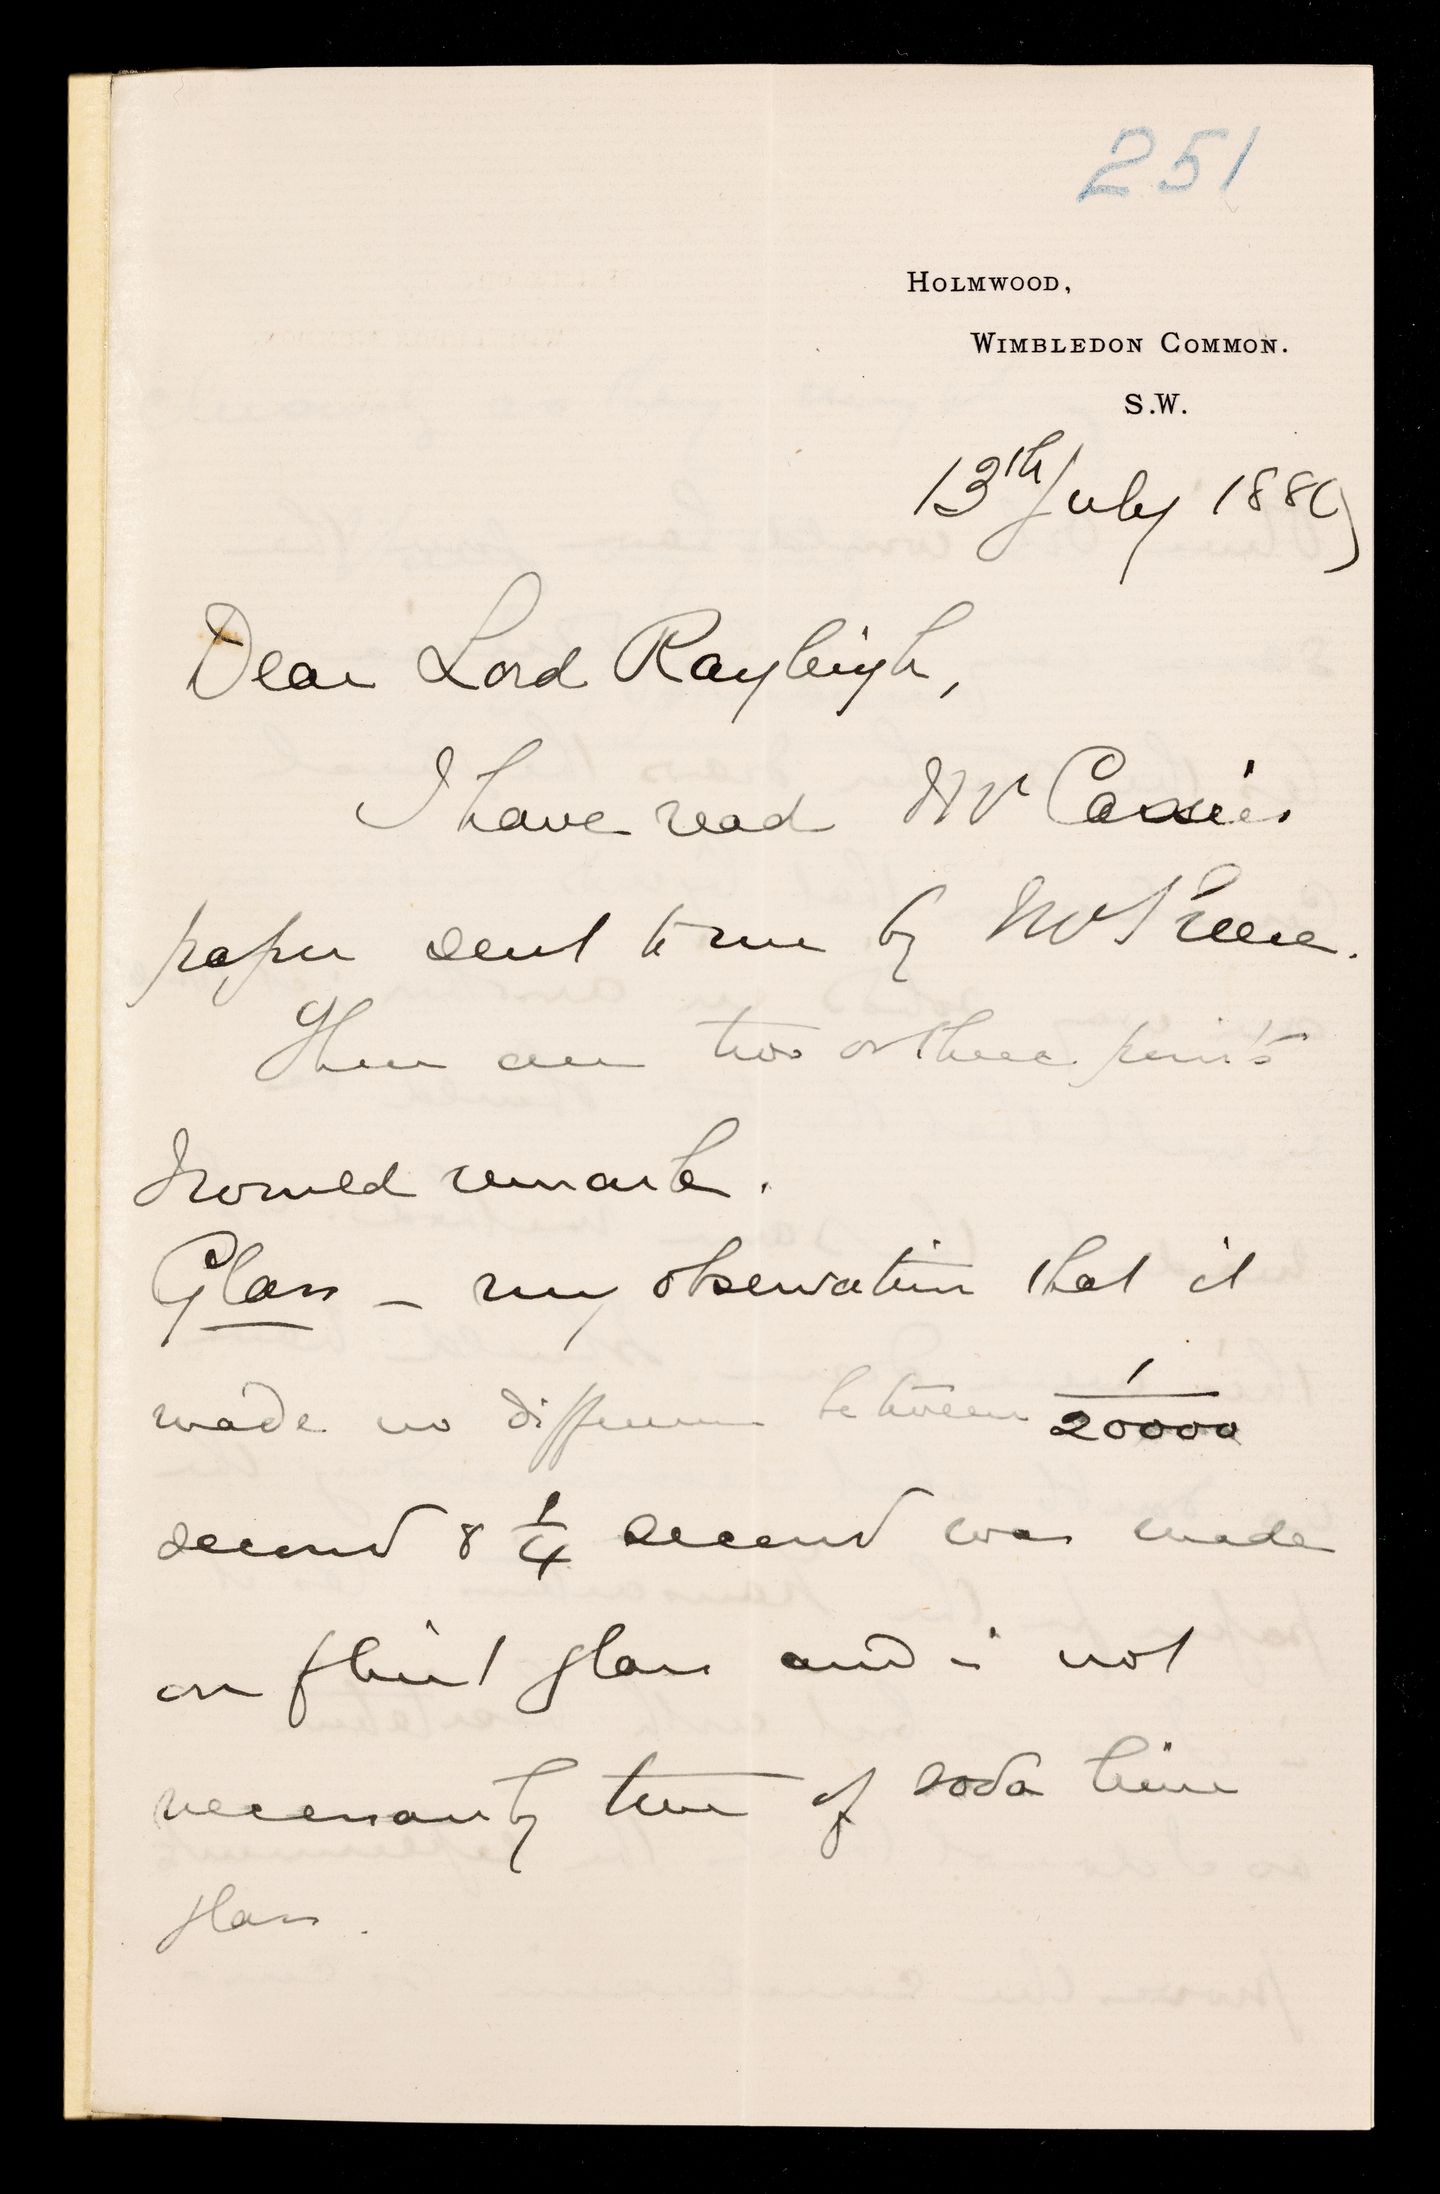 251
HOLMWOOD,
WIMBLEDON COMMON.
S.W.
13th July 1889
Dear Lord Rayleigh,
I have read Mr Cassie's
paper sent to me by Mr
There are two or three points
I would remark.
Glass – my observation that it
made no difference between 1/20000
second & 1/4 second was made
on flint glass and is not
necessarily true of soda lime
glass.